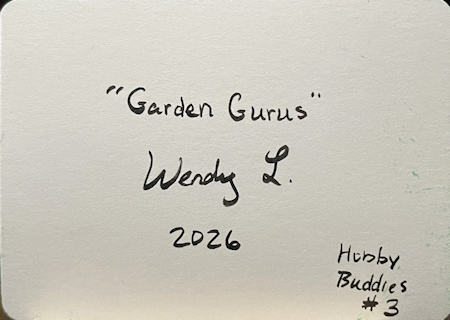 "Garden Gurus"
Wendy L.
2026
Hobby
Buddies
#3